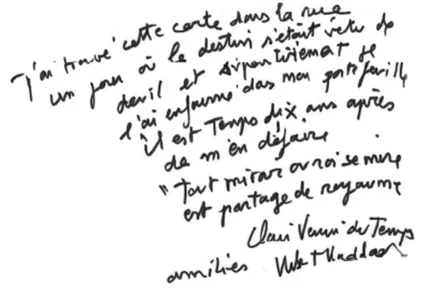 J'ai trouvé cette carte dans la rue
un jour où le destin s'était vêtu de
deuil et
l'ai enfermé dans mon portefeuille
il est temps dix ans après
de m'en défaire
"Tout miroir
est partage de royaume
du Temps
amitiés